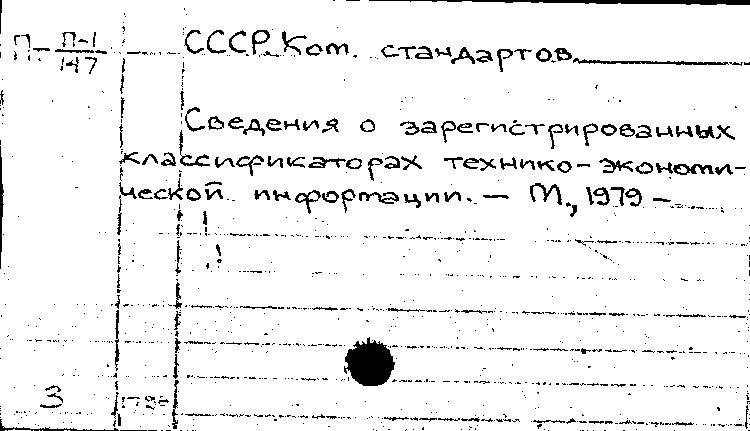 П-П-1/147 СССР. Ком. стандартов.
Сведения о зарегистрированных
классификаторах технико-экономи-
ческой информации. — М., 1979 —
3